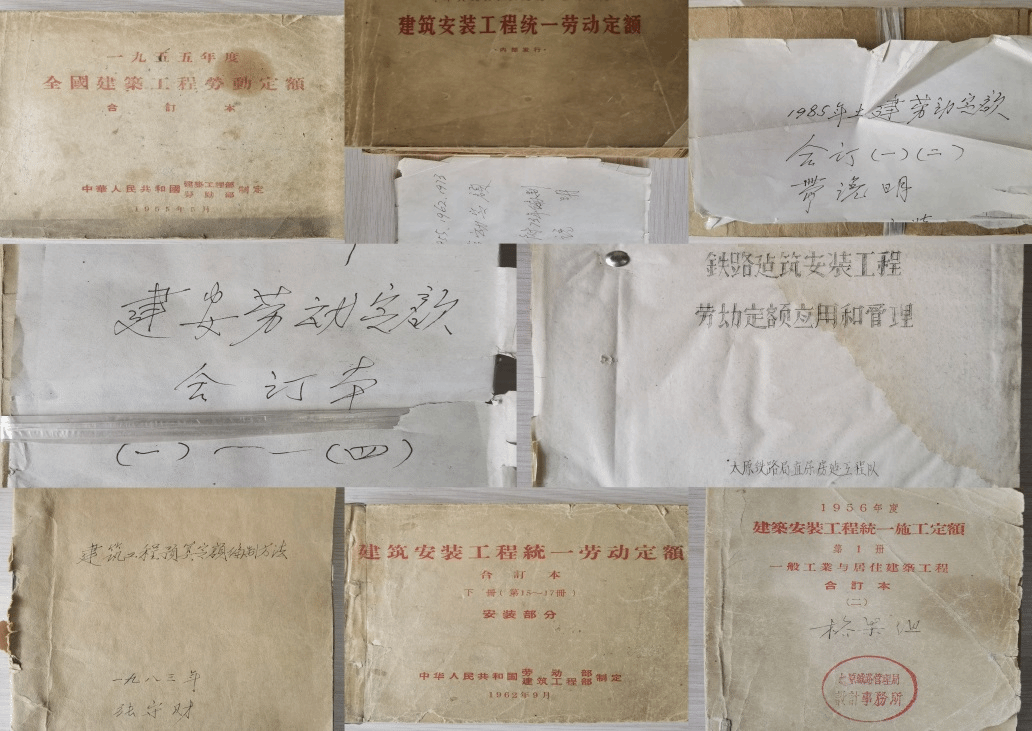 一九五五年度
全國建築工程勞動定額
合訂本
中華人民共和國建築工程部勞動部制定
1955年5月
建筑安装工程统一劳动定额
·内部发行·
1985年土建劳动定额
合订(一)(二)
带说明
55.1962.1973
建安劳动定额
合订本
(一)——(四)
鉄路建筑安装工程
劳动定额应用和管理
太原铁路局直属房建工程队
建筑工程预算定额编制方法
一九八三年
建筑安装工程統一劳动定額
合訂本
下冊(第15—17冊)
安装部分
中华人民共和國劳动部建筑工程部制定
1962年9月
1956年度
建築安装工程統一施工定額
第1册
一般工業与居住建築工程
合訂本
(二)
太原鐵路管理局
設計事務所